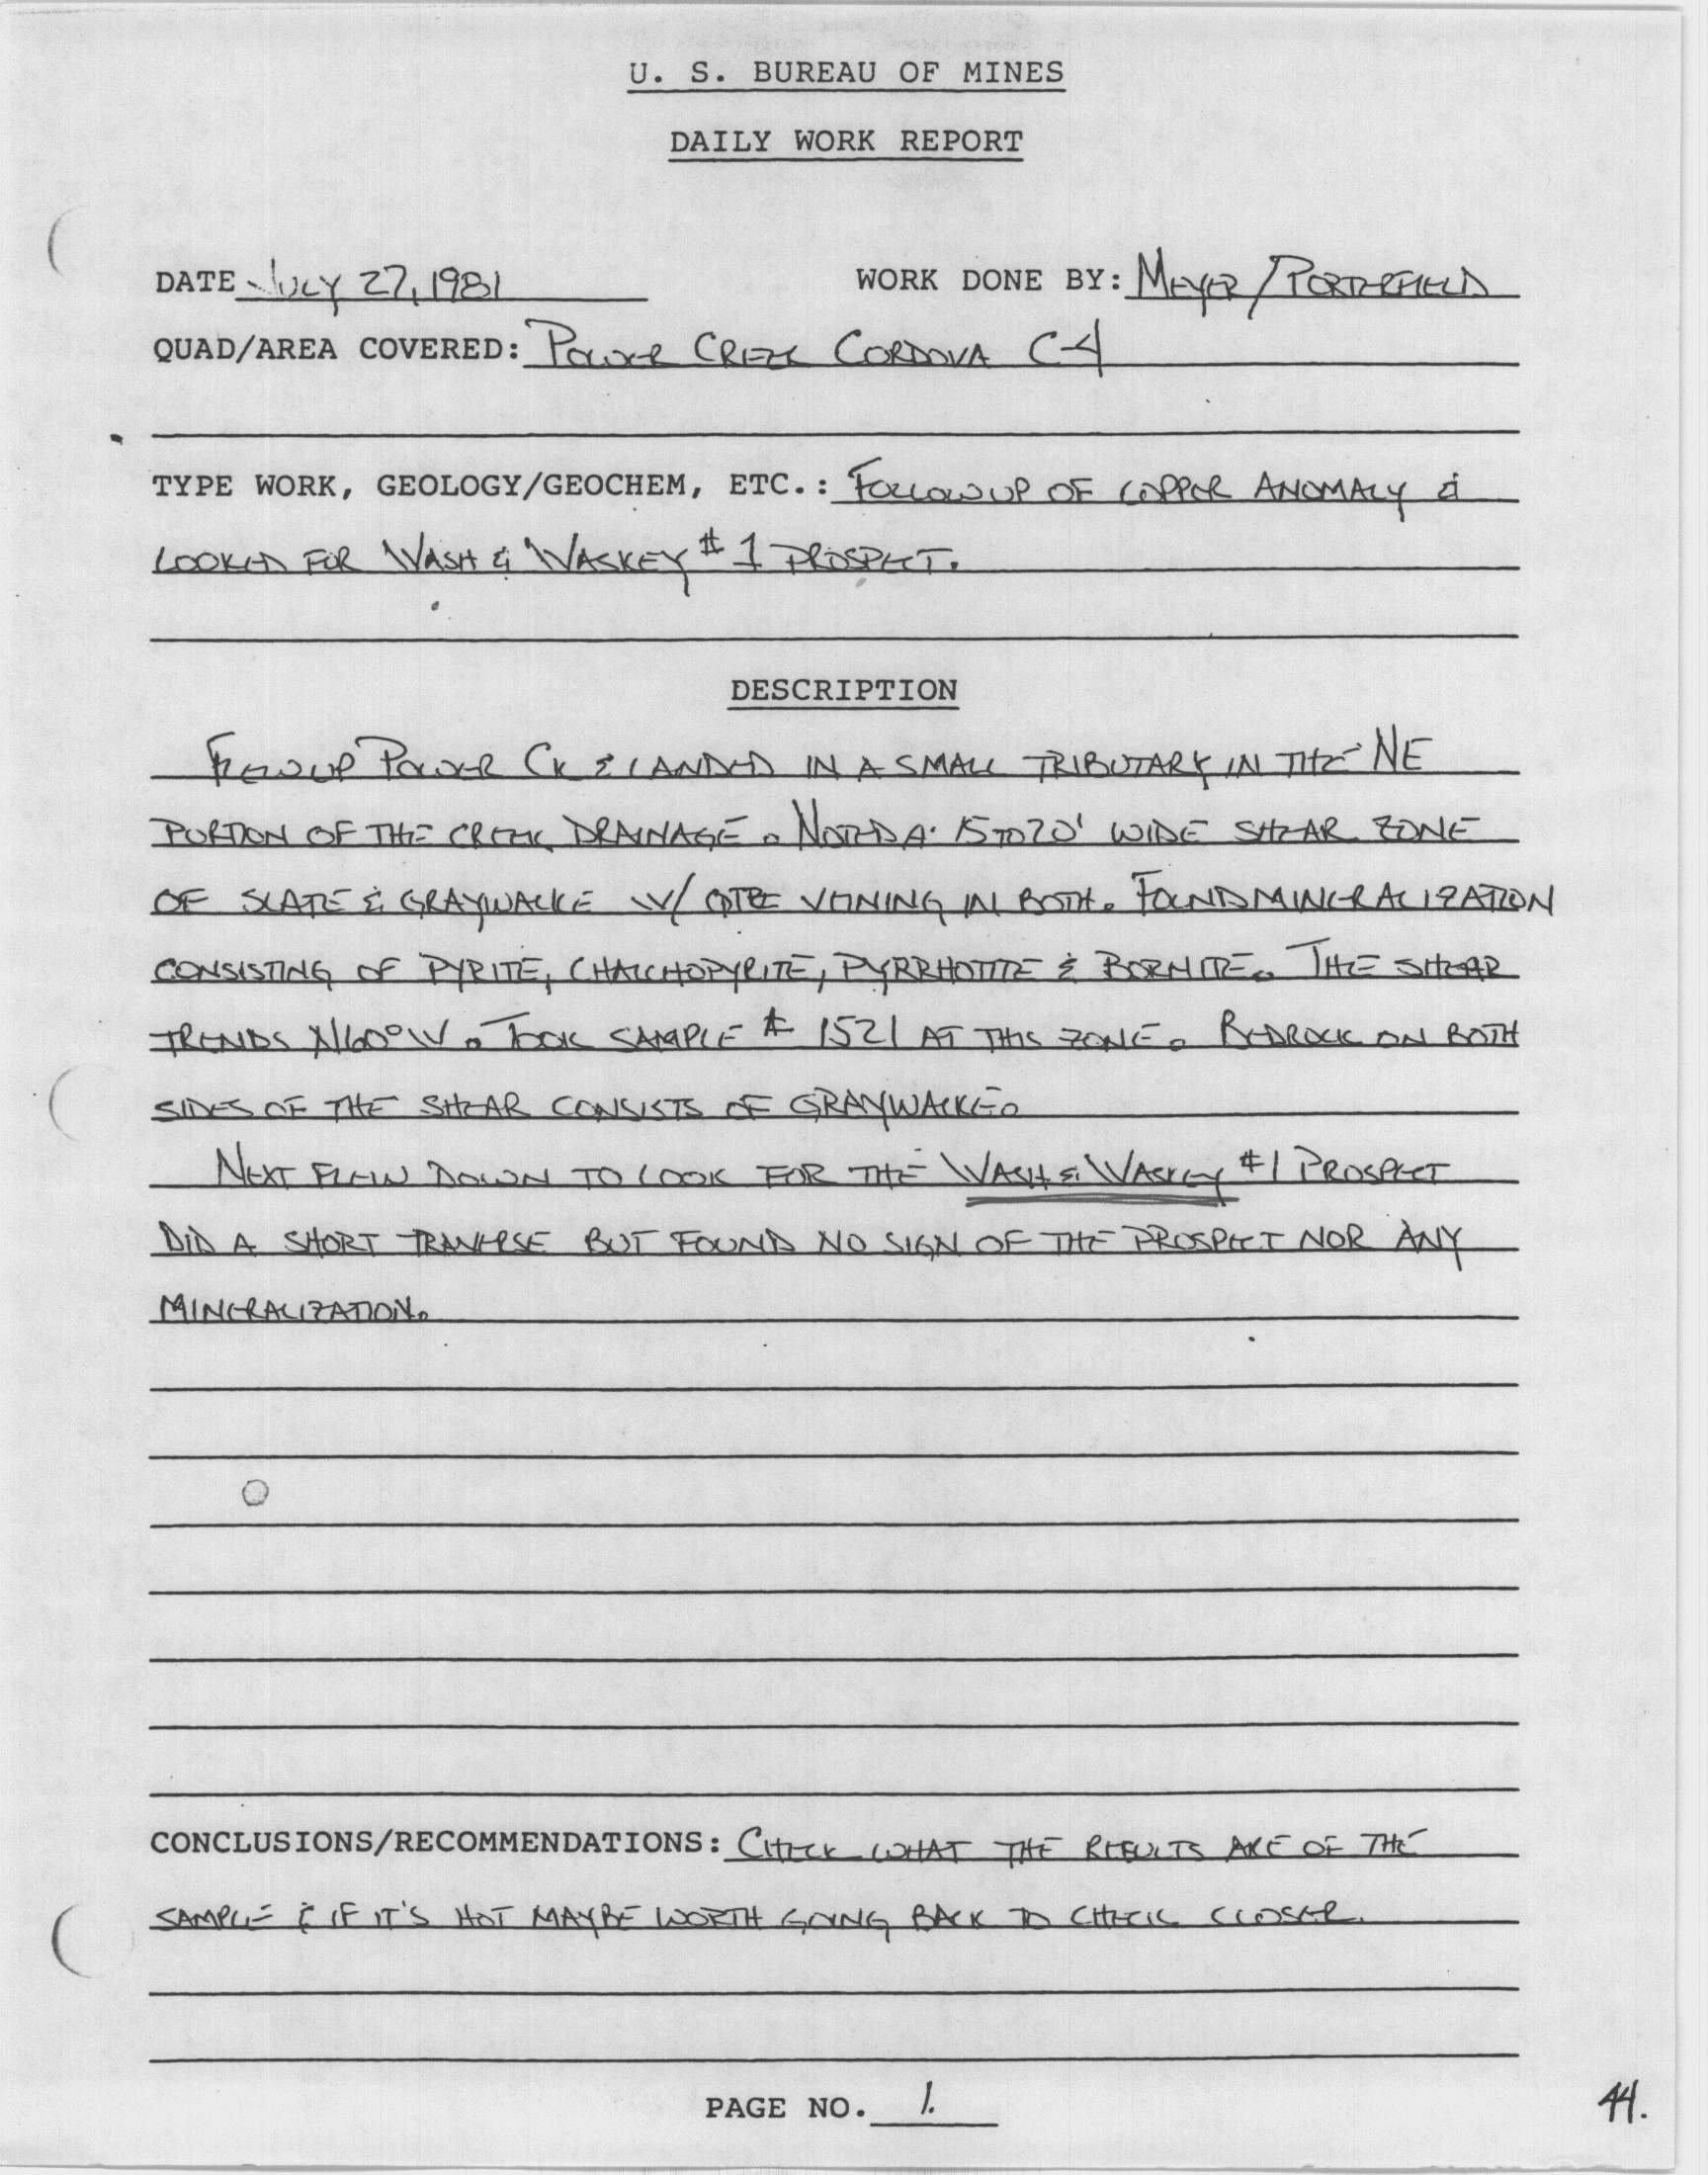 U. S. BUREAU OF MINES
DAILY WORK REPORT
DATE JULY 27, 1981 WORK DONE BY: MEYER/PORTERFIELD
QUAD/AREA COVERED: POWER CREEK CORDOVA C-4
TYPE WORK, GEOLOGY/GEOCHEM, ETC.: FOLLOWUP OF COPPER ANOMALY &
LOOKED FOR WASH & WASKEY #1 PROSPECT.
DESCRIPTION
FLEW UP POWER CK & LANDED IN A SMALL TRIBUTARY IN THE NE
PORTION OF THE CREEK DRAINAGE. NOTED A 15 TO 20' WIDE SHEAR ZONE
OF SLATE & GRAYWACKE W/ QTZ VEINING IN BOTH. FOUND MINERALIZATION
CONSISTING OF PYRITE, CHALCHOPYRITE, PYRRHOTITE & BORNITE. THE SHEAR
TRENDS N60°W. TOOK SAMPLE # 1521 AT THIS ZONE. BEDROCK ON BOTH
SIDES OF THE SHEAR CONSISTS OF GRAYWACKE.
NEXT FLEW DOWN TO LOOK FOR THE WASH & WASKEY #1 PROSPECT
DID A SHORT TRAVERSE BUT FOUND NO SIGN OF THE PROSPECT NOR ANY
MINERALIZATION.
CONCLUSIONS/RECOMMENDATIONS: CHECK WHAT THE RESULTS ARE OF THE
SAMPLE & IF IT'S HOT MAYBE WORTH GOING BACK TO CHECK CLOSER.
PAGE NO. 1.
44.